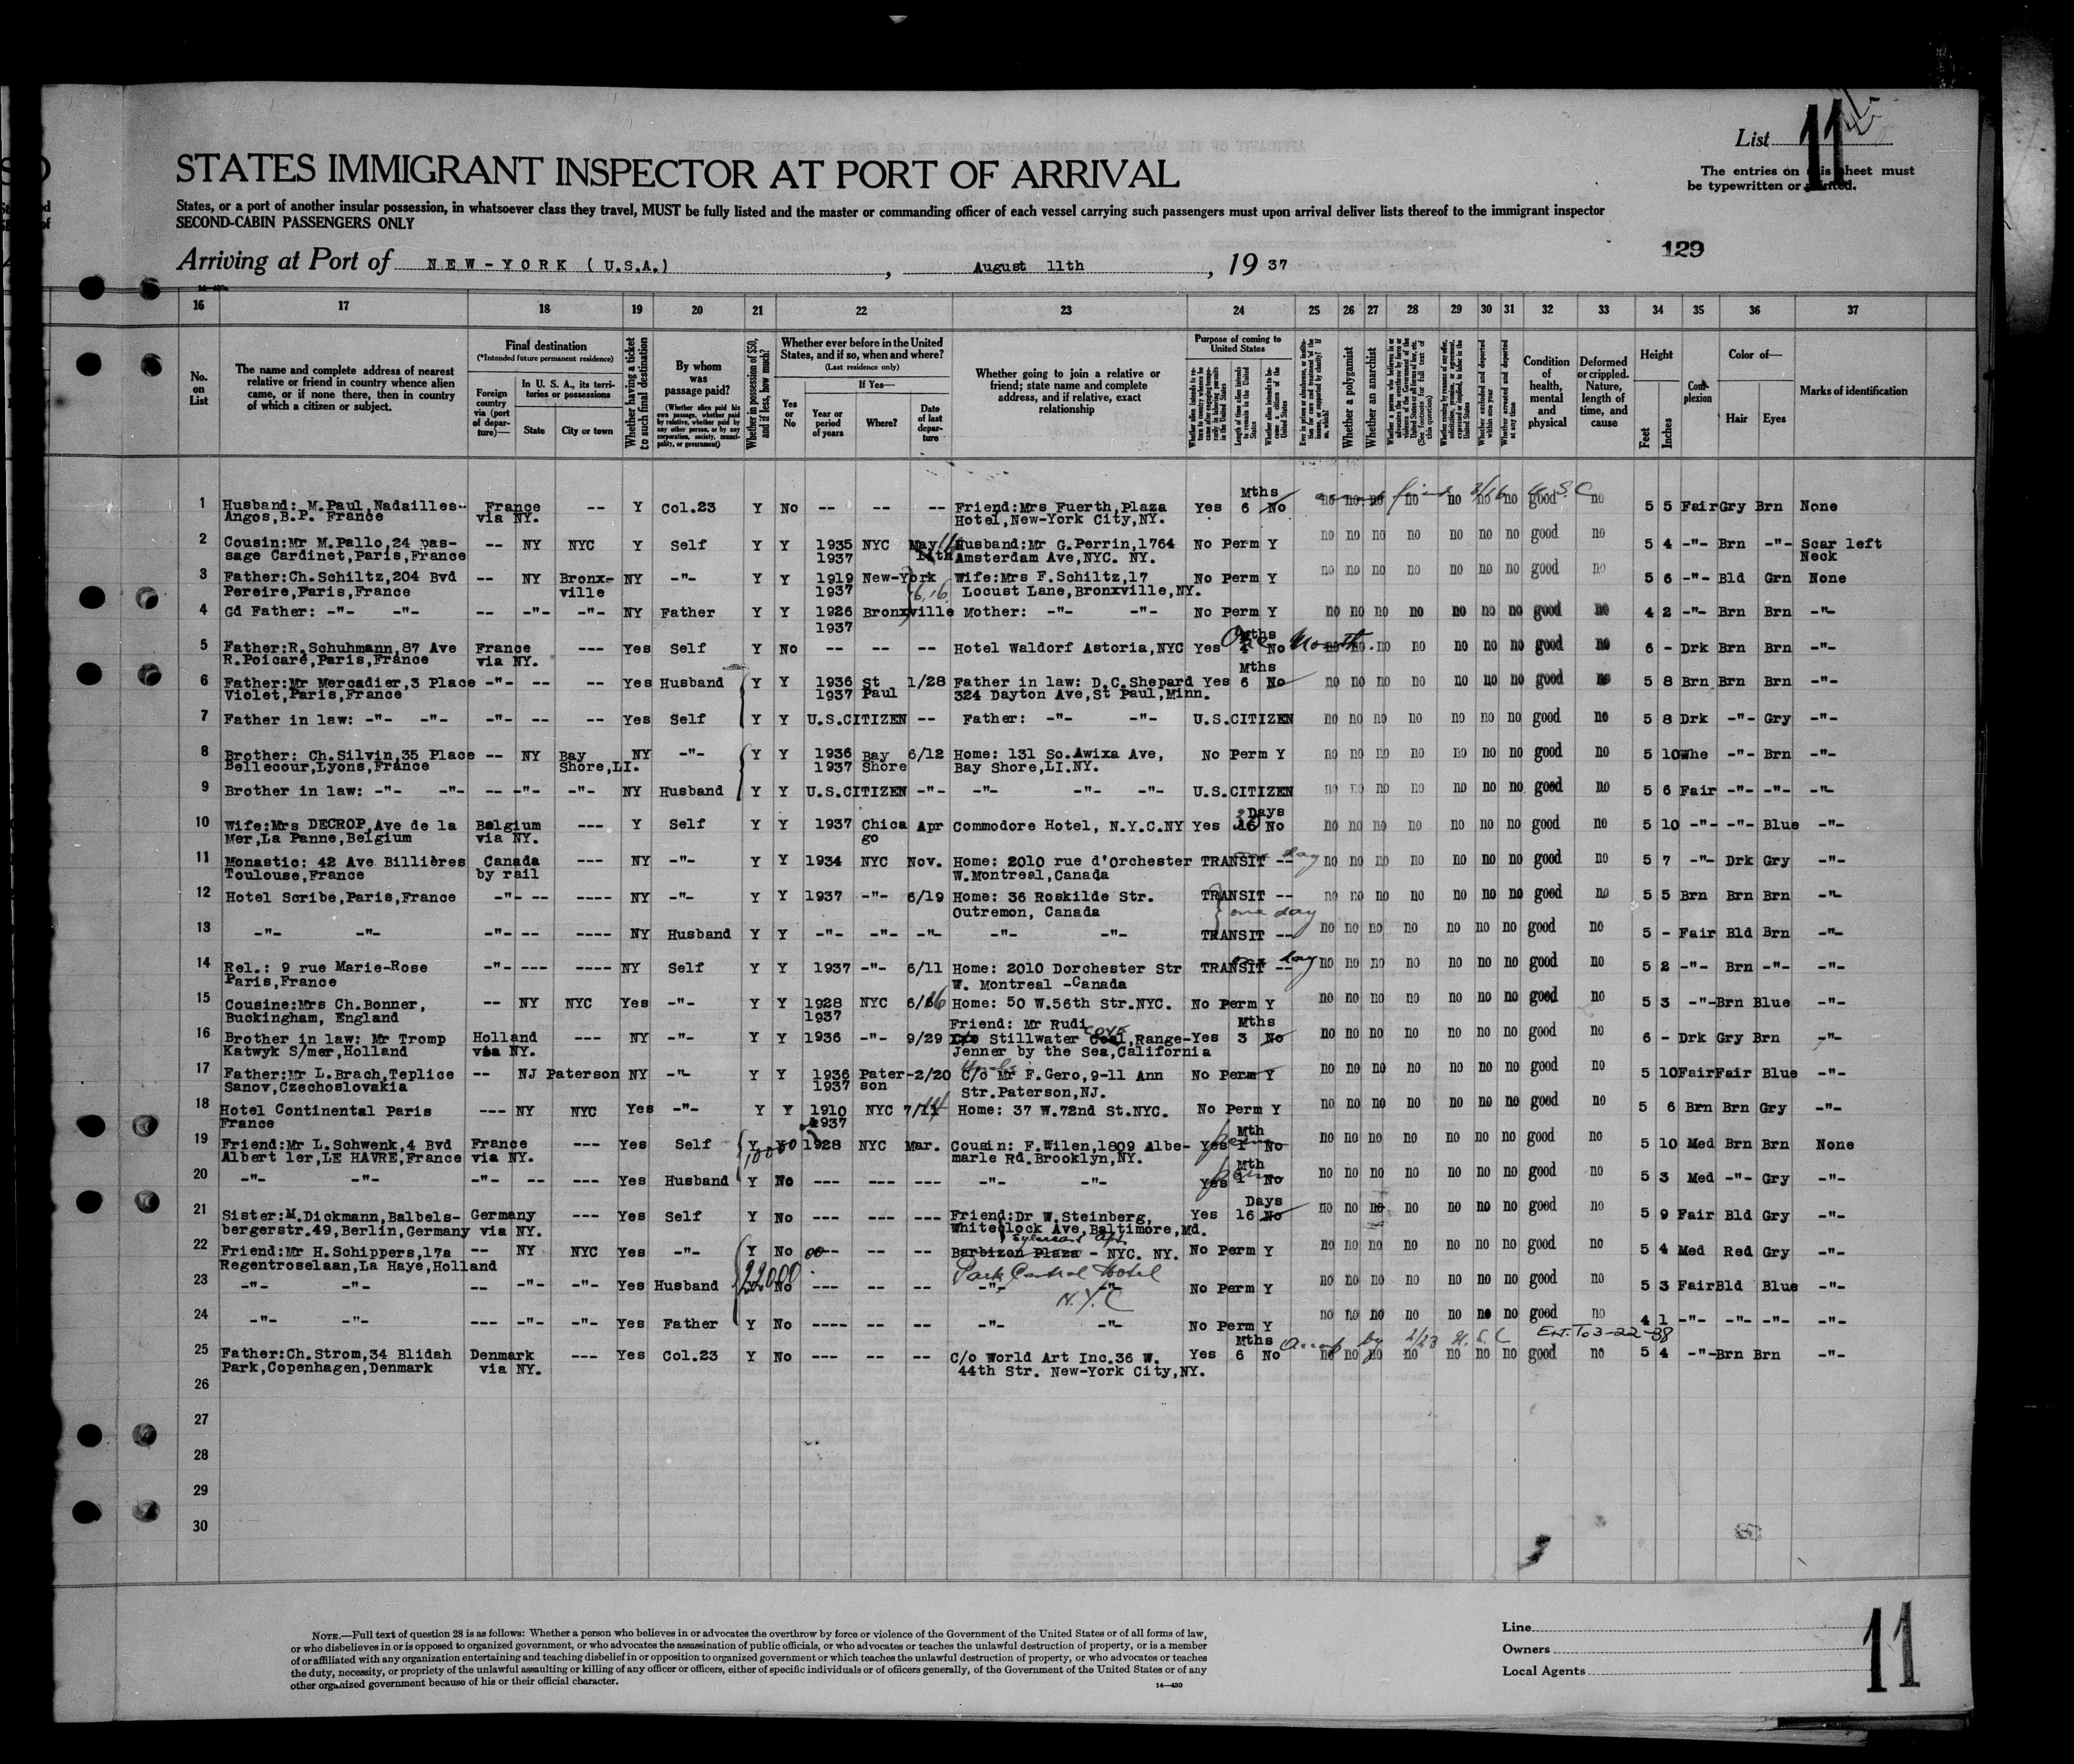 List 11
The entries on this sheet must
be typewritten or printed.
STATES IMMIGRANT INSPECTOR AT PORT OF ARRIVAL
States, or a port of another insular possession, in whatsoever class they travel, MUST be fully listed and the master or commanding officer of each vessel carrying such passengers must upon arrival deliver lists thereof to the immigrant inspector
SECOND-CABIN PASSENGERS ONLY
129
Arriving at Port of NEW-YORK (U.S.A.), August 11th, 19 37
16 17 18 19 20 21 22 23 24 25 26 27 28 29 30 31 32 33 34 35 36 37
No. on List
The name and complete address of nearest relative or friend in country whence alien came, or if none there, then in country of which a citizen or subject.
Final destination
(*Intended future permanent residence)
Foreign country via (port of departure)—
In U. S. A., its territories or possessions
State
City or town
Whether having a ticket to such final destination
By whom was passage paid?
(Whether alien paid his own passage, whether paid by relative, whether paid by any other person, or by any corporation, society, municipality, or government)
Whether in possession of $50, and if less, how much?
Whether ever before in the United States, and if so, when and where?
(Last residence only)
Yes or No
If Yes—
Year or period of years
Where?
Date of last departure
Whether going to join a relative or friend; state name and complete address, and if relative, exact relationship
Purpose of coming to United States
Length of time alien intends to remain in the United States
Whether alien intends to become a citizen of the United States
Whether a polygamist
Whether an anarchist
Whether excluded and deported within one year
Whether arrested and deported at any time
Condition of health, mental and physical
Deformed or crippled. Nature, length of time, and cause
Height
Feet
Inches
Complexion
Color of—
Hair
Eyes
Marks of identification
1 Husband: M.Paul,Nadailles- France -- Y Col.23 Y No -- -- -- Friend:Mrs Fuerth,Plaza Yes Mths 6 No no no no no no no no good no 5 5 Fair Gry Brn None
Angos,B.P. France via NY. Hotel,New-York City,NY.
2 Cousin:Mr M.Pallo,24 pas- -- NY NYC Y Self Y Y 1935 NYC May Husband:Mr G.Perrin,1764 No Perm Y no no no no no no no good no 5 4 -"- Brn -"- Scar left
sage Cardinet,Paris,France 1937 11th Amsterdam Ave,NYC. NY. Neck
3 Father:Ch.Schiltz,204 Bvd -- NY Bronx- NY -"- Y Y 1919 New-York Wife:Mrs F.Schiltz,17 No Perm Y no no no no no no no good no 5 6 -"- Bld Grn None
Pereire,Paris,France ville 1937 Locust Lane,Bronxville,NY.
4 Gd Father: -"- -"- -- -"- -"- NY Father Y Y 1926 Bronxville Mother: -"- -"- No Perm Y no no no no no no no good no 4 2 -"- Brn Brn -"-
1937
5 Father:R.Schuhmann,87 Ave France --- Yes Self Y No -- -- -- Hotel Waldorf Astoria,NYC Yes One Month No no no no no no no no good no 6 - Drk Brn Brn -"-
R.Poicaré,Paris,France via NY.
6 Father:Mr Mercadier,3 Place -"- -- -- Yes Husband Y Y 1936 St 1/28 Father in law: D.C.Shepard Yes Mths 6 No no no no no no no no good no 5 8 Brn Brn Brn -"-
Violet,Paris,France 1937 Paul 324 Dayton Ave,St Paul,Minn.
7 Father in law: -"- -"- -"- -- -- Yes Self Y Y U.S.CITIZEN -- Father: -"- -"- U.S.CITIZEN no no no no no no no good no 5 8 Drk -"- Gry -"-
8 Brother: Ch.Silvin,35 Place -- NY Bay NY -"- Y Y 1936 Bay 6/12 Home: 131 So.Awixa Ave, No Perm Y no no no no no no no good no 5 10 Whe -"- Brn -"-
Bellecour,Lyons,France Shore,LI. 1937 Shore Bay Shore,LI.NY.
9 Brother in law: -"- -"- -- -"- -"- NY Husband Y Y U.S.CITIZEN -"- -"- -"- -"- U.S.CITIZEN no no no no no no no good no 5 6 Fair -"- -"- -"-
10 Wife:Mrs DECROP,Ave de la Belgium --- Y Self Y Y 1937 Chica Apr Commodore Hotel, N.Y.C.NY Yes Days No no no no no no no no good no 5 10 -"- -"- Blue -"-
Mer,La Panne,Belgium via NY. go
11 Monastic: 42 Ave Billières Canada --- NY -"- Y Y 1934 NYC Nov. Home: 2010 rue d'Orchester TRANSIT -- one day no no no no no no no good no 5 7 -"- Drk Gry -"-
Toulouse,France by rail W.Montreal,Canada
12 Hotel Scribe,Paris,France -"- -- ---- NY -"- Y Y 1937 -"- 6/19 Home: 36 Roskilde Str. TRANSIT -- no no no no no no no good no 5 5 Brn Brn Brn -"-
Outremon, Canada one day
13 -"- -"- -"- -- ---- NY Husband Y Y -"- -"- -"- -"- -"- TRANSIT -- no no no no no no no good no 5 - Fair Bld Brn -"-
14 Rel.: 9 rue Marie-Rose -"- --- ---- NY Self Y Y 1937 -"- 6/11 Home: 2010 Dorchester Str TRANSIT -- one day no no no no no no no good no 5 2 -"- Brn -"- -"-
Paris,France W. Montreal -Canada
15 Cousine:Mrs Ch.Bonner, -- NY NYC Yes -"- Y Y 1928 NYC 6/16 Home: 50 W.56th Str.NYC. No Perm Y no no no no no no no good no 5 3 -"- Brn Blue -"-
Buckingham, England 1937
Friend: Mr Rudi Mths
16 Brother in law: Mr Tromp Holland --- NY -"- Y Y 1936 -"- 9/29 C/o Stillwater Cove,Range- Yes 3 No no no no no no no no good no 6 - Drk Gry Brn -"-
Katwyk S/mer,Holland via NY. Jenner by the Sea,California
17 Father:Mr L.Brach,Teplice -- NJ Paterson NY -"- Y Y 1936 Pater- 2/20 C/o Mr F.Gero,9-11 Ann No Perm Y no no no no no no no good no 5 10 Fair Fair Blue -"-
Sanov,Czechoslovakia 1937 son Str.Paterson,NJ.
18 Hotel Continental Paris --- NY NYC Yes -"- Y Y 1910 NYC 7/14 Home: 37 W.72nd St.NYC. No Perm Y no no no no no no no good no 5 6 Brn Brn Gry -"-
France 1937
19 Friend:Mr L.Schwenk,4 Bvd France --- Yes Self Y 1928 NYC Mar. Cousin: F.Wilen,1809 Albe- Yes Mth 1 No no no no no no no no good no 5 10 Med Brn Brn None
Albert 1er,LE HAVRE,France via NY. marle Rd.Brooklyn,NY.
20 -"- -"- -"- -- --- Yes Husband Y No --- --- --- -"- -"- Yes Mth 1 No no no no no no no no good no 5 3 Med -"- Gry -"-
21 Sister:M.Dickmann,Balbels- Germany --- Yes Self Y No --- --- --- Friend:Dr W.Steinberg, Yes Days 16 No no no no no no no no good no 5 9 Fair Bld Gry -"-
bergerstr.49,Berlin,Germany via NY. Whitelock Ave,Baltimore,Md.
22 Friend:Mr H.Schippers,17a -- NY NYC Yes -"- Y No --- -- -- Barbizon Plaza - NYC. NY. No Perm Y no no no no no no no good no 5 4 Med Red Gry -"-
Regentroselaan,La Haye,Holland Park Central Hotel
23 -"- -"- -- -"- -"- Yes Husband Y No --- -- -- -"- -"- No Perm Y no no no no no no no good no 5 3 Fair Bld Blue -"-
N.Y.C
24 -"- -"- --- -"- -"- Yes Father Y No ---- -- -- -"- -"- No Perm Y no no no no no no no good no 4 1 -"- -"- -"- -"-
Ext. To 3-22-38
25 Father:Ch.Strom,34 Blidah Denmark --- Yes Col.23 Y No --- -- -- C/o World Art Inc.36 W. Yes Mths 6 No no no no no no no no good no 5 4 -"- Brn Brn -"-
Park,Copenhagen,Denmark via NY. 44th Str. New-York City,NY.
26
27
28
29
30
NOTE.—Full text of question 28 is as follows: Whether a person who believes in or advocates the overthrow by force or violence of the Government of the United States or of all forms of law,
or who disbelieves in or is opposed to organized government, or who advocates the assassination of public officials, or who advocates or teaches the unlawful destruction of property, or is a member
of or affiliated with any organization entertaining and teaching disbelief in or opposition to organized government or which teaches the unlawful destruction of property, or who advocates or teaches
the duty, necessity, or propriety of the unlawful assaulting or killing of any officer or officers, either of specific individuals or of officers generally, of the Government of the United States or of any
other organized government because of his or their official character.
14—430
Line
Owners
Local Agents
11